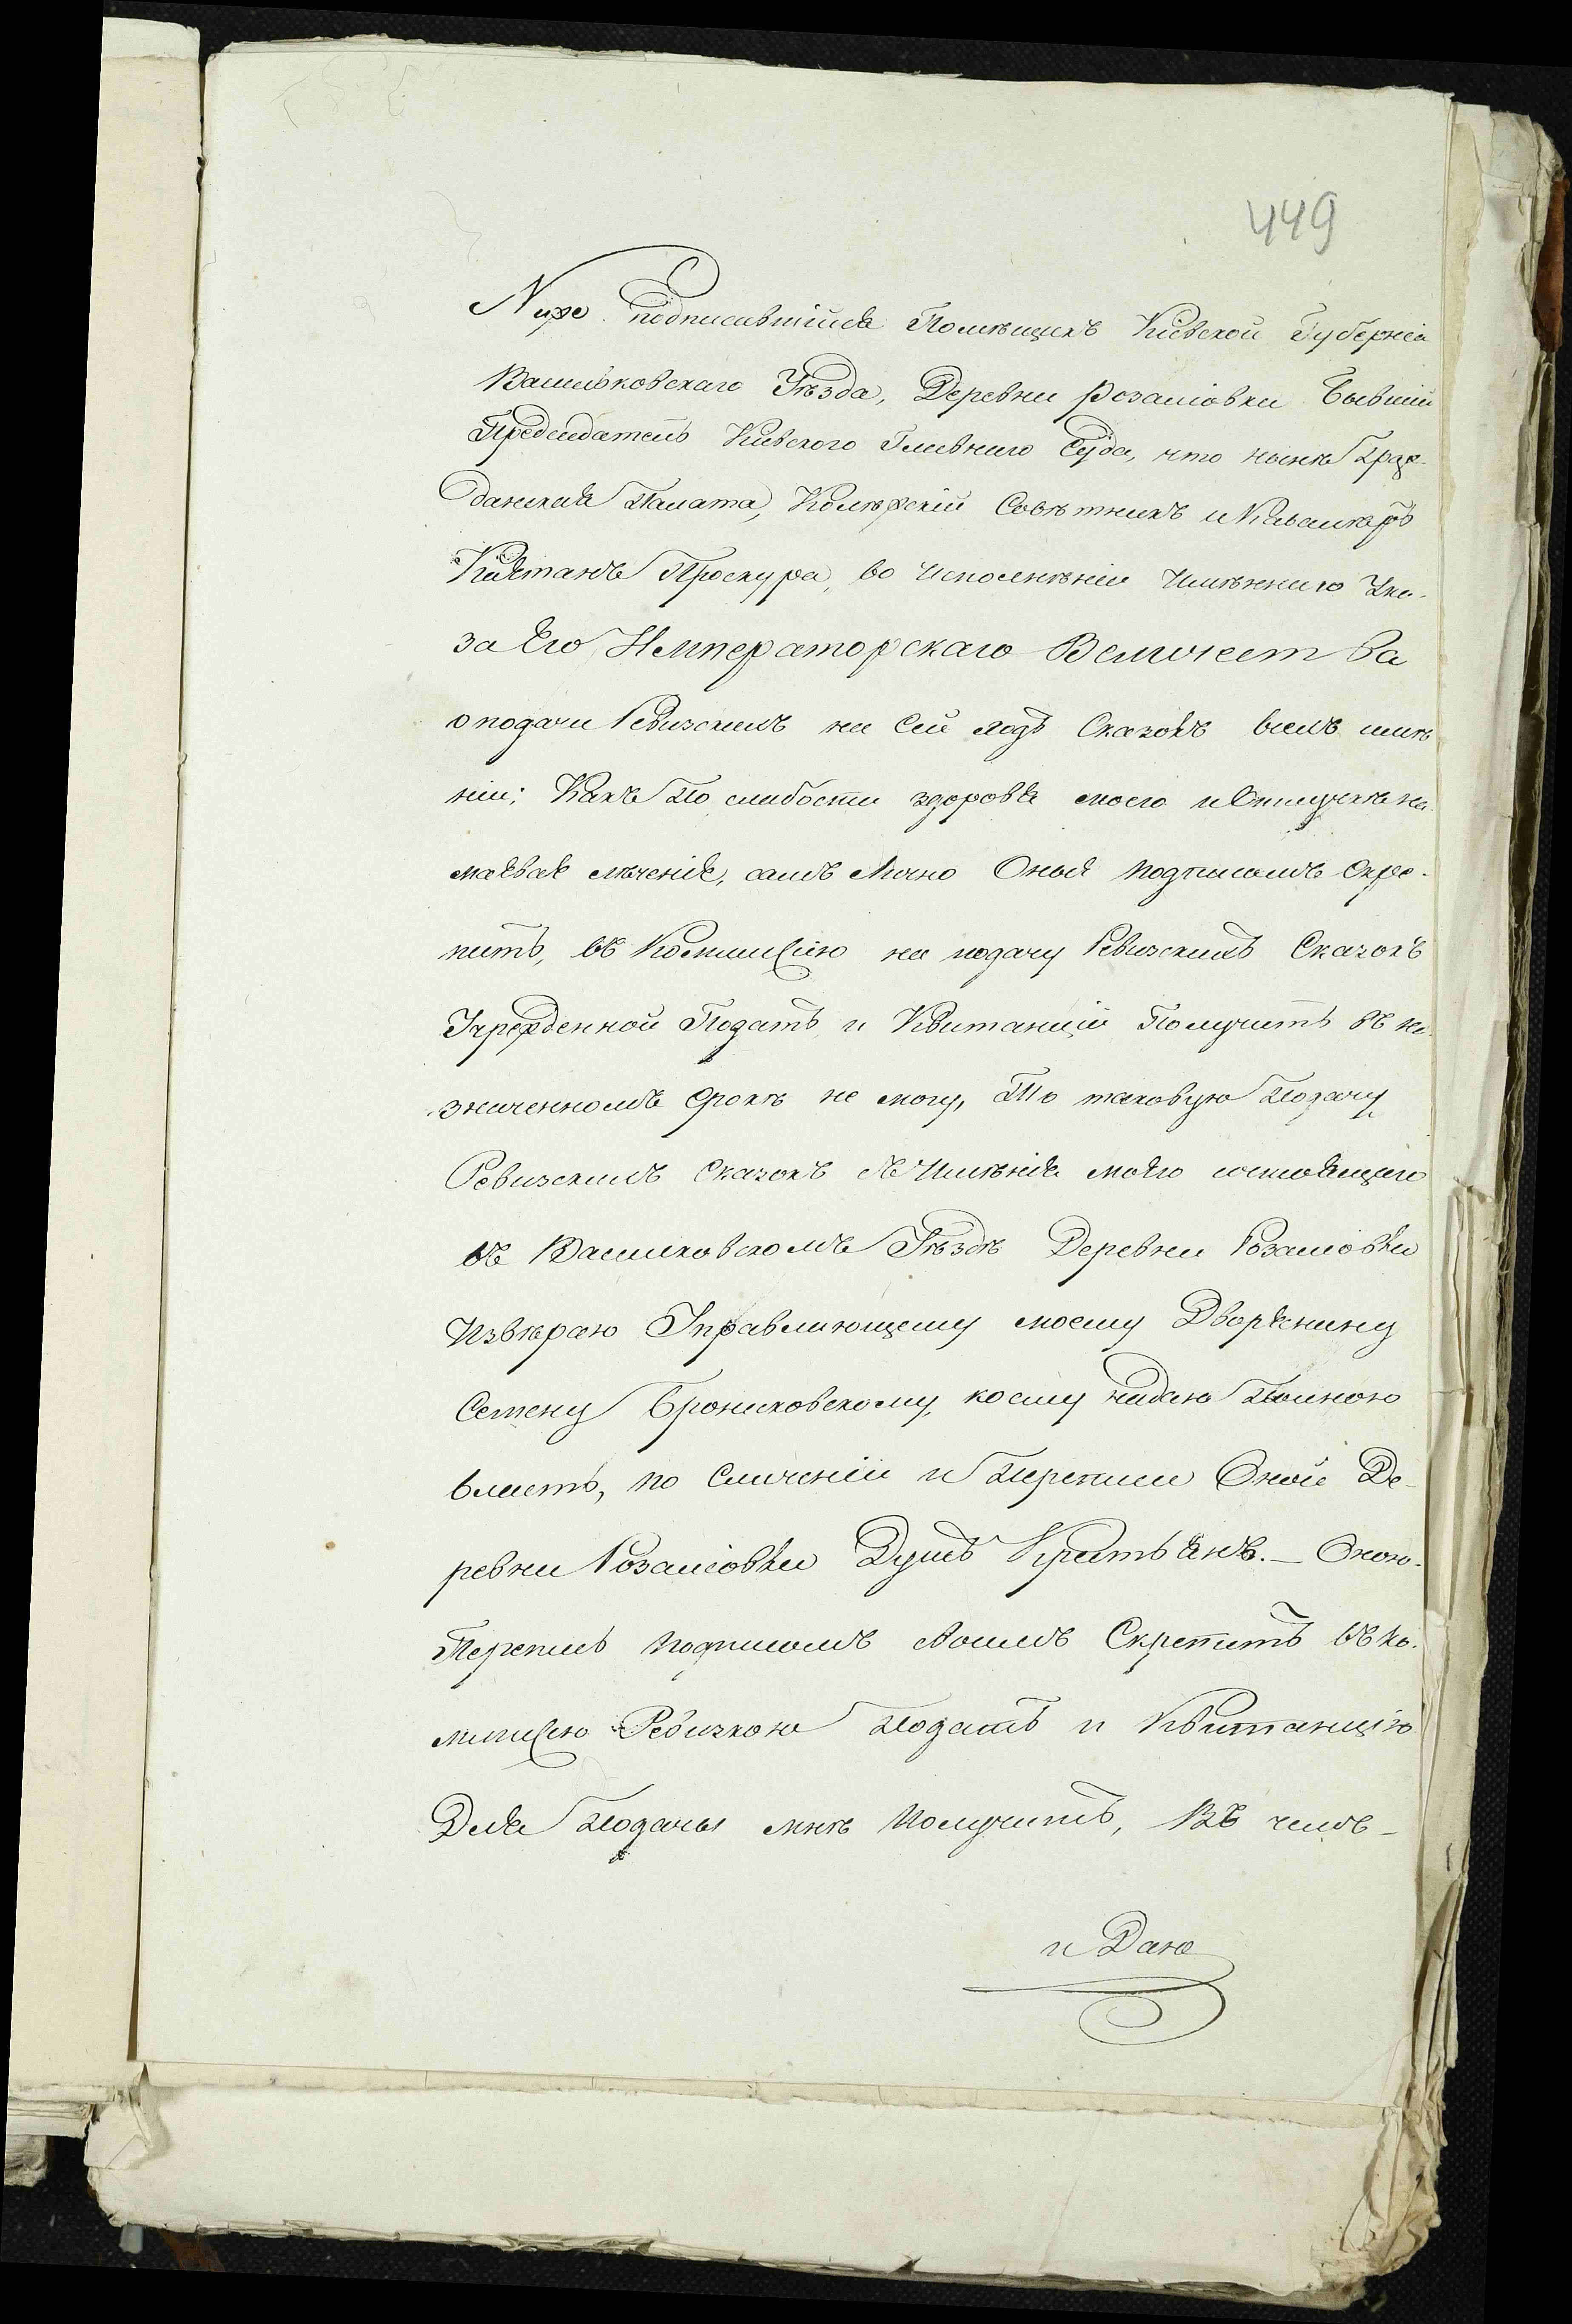 449
Ниже подписавшійся Помѣщикъ Кіевской Губерніи
Васильковскаго Уѣзда, Деревни Розаліовки Бывшій
Предсидатель Кіевского Главнаго Суда, что нынѣ Граж-
данская Палата, Колѣжскій Совѣтникъ и Кавалеръ
Каетанъ Проскура, во исполнѣніи Имѣнного Ука-
за Его Императорскаго Величества
о подачи Ревизскихъ на Сей годъ Сказокъ всемъ имѣ
ніи: Какъ По слабости здоровя моего и Отлучкѣ на
маявая лѣченія, самъ Лично Оныя Подписомъ Скре-
пить, въ Коммисію на подачу Ревизскихъ Сказокъ
Учрежденной Подать и Квитанціи Получить въ на-
значенномъ срокѣ не могу, То таковую Подачу
Ревизскихъ Сказокъ съ Имѣнія моего состоящаго
въ Василковскомъ Уѣздѣ Деревни Розаліовки
Извѣраю Управляющему моему Дворянину
Семену Брониковскому, коему надаю Полною
власть, по Сличеніи и Переписи Оной Де-
ревни Розаліовки Душъ Крестьянъ. — Оною
Перепись Подписомъ своимъ Скрепить въ Ко-
мисію Ревизкою Подать и Квитанцію
Для Подачы мнѣ Получить, Въ чемъ —
и Даю